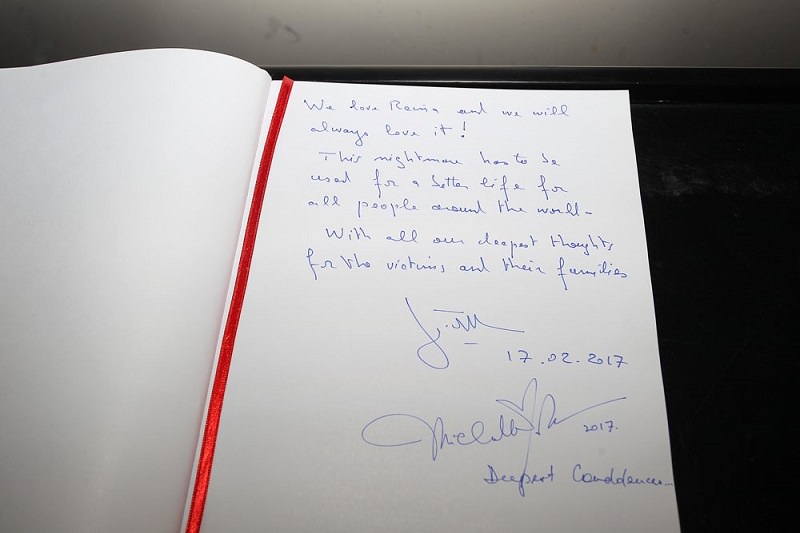 We love Reina and we will
always love it!
This nightmare has to be
used for a better life for
all people around the world-
With all our deepest thoughts
for the victims and their families
17.02.2017
2017.
Deepest Condolences...